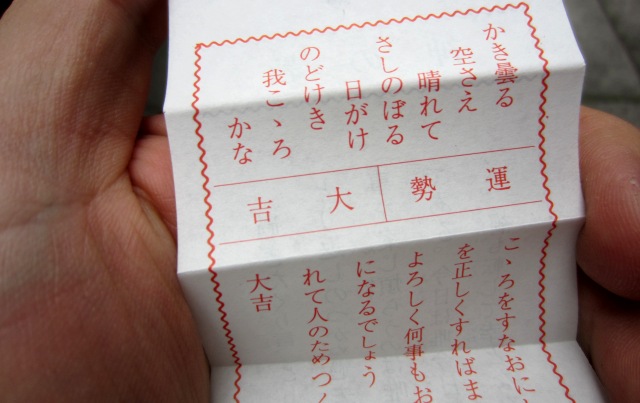 かき曇る
空さえ
晴れて
さしのぼる
日がけ
のどけき
我こゝろ
かな
運勢
大吉
こゝろをすなおに
を正しくすればま
よろしく何事もお
になるでしょう
れて人のためつ
大吉